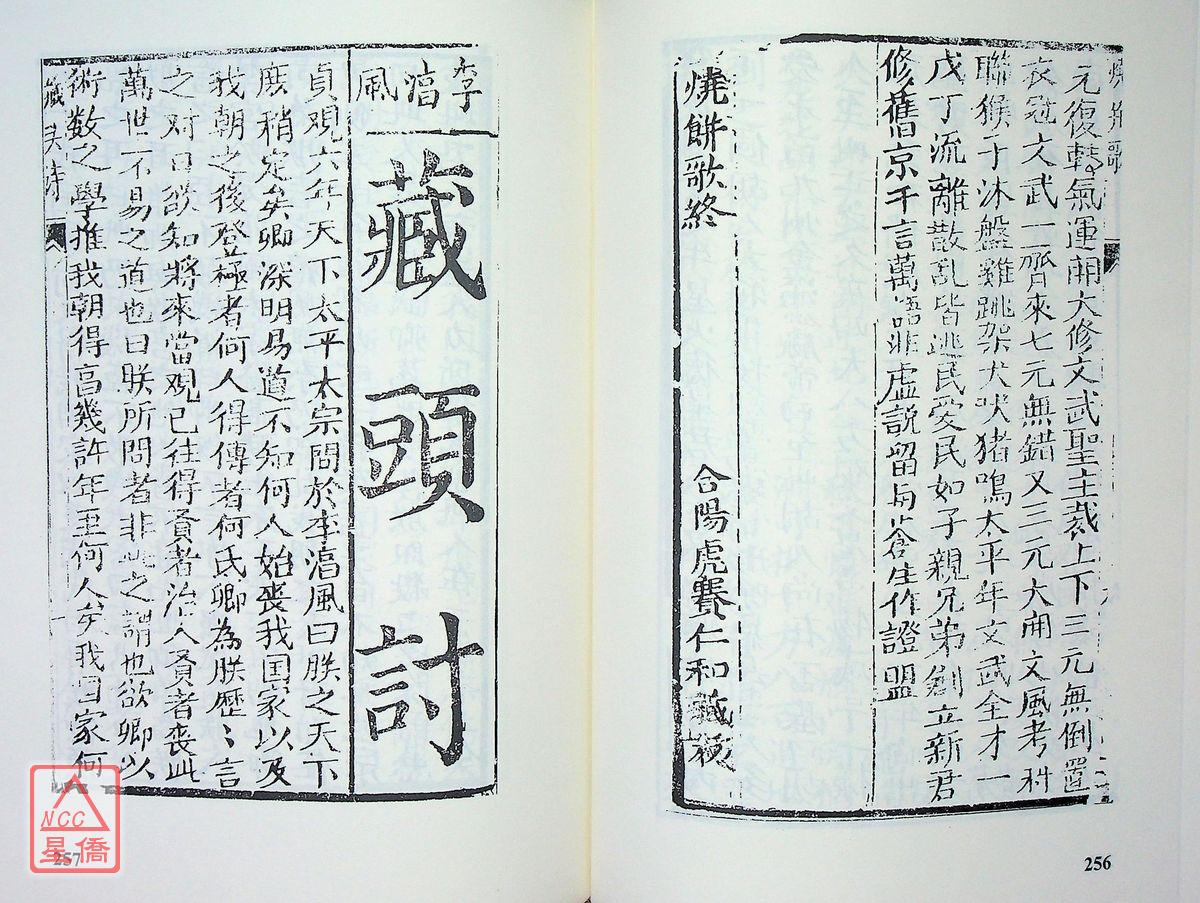 燒餅歌
元復轉氣運開大修文武聖主裁上下三元無倒置
衣冠文武一齊來七元無錯又三元大開文風考科
聯猴子沐盤雞跳架犬吠猪鳴太平年文武全才一
戊丁流離散乱皆逃民愛民如子親兄弟創立新君
修舊京千言萬語非虛説留与蒼生作證盟
燒餅歌終
合陽虎賽仁和
256
李淳風
藏頭討
貞观六年天下太平太宗問於李淳風曰朕之天下
庶稍定矣卿深明易道不知何人始喪我国家以及
我朝之後登極者何人得傳者何氏卿為朕歷〻言
之对曰欲知將來當观已往得賢者治人賢者喪此
萬世不易之道也曰朕所問者非此之謂也欲卿以
術数之學推我朝得享幾許年至何人矣我囯家何
藏头诗
一
257
NCC
星僑